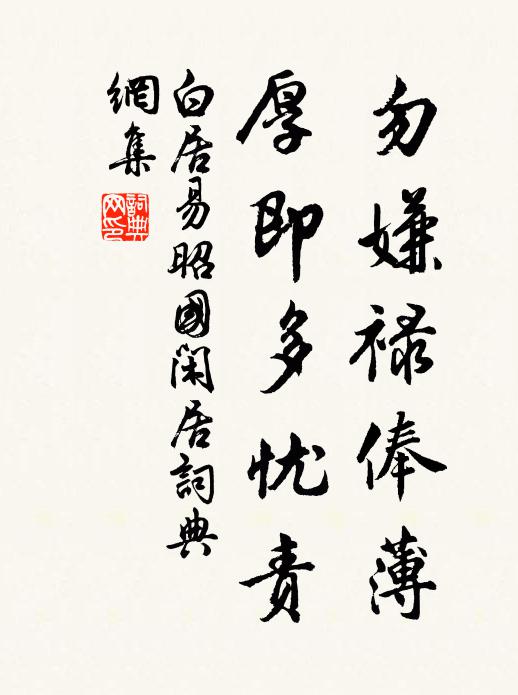 勿嫌禄俸薄
厚即多忧责
白居易昭國閑居詞典
網集
詞典
网印